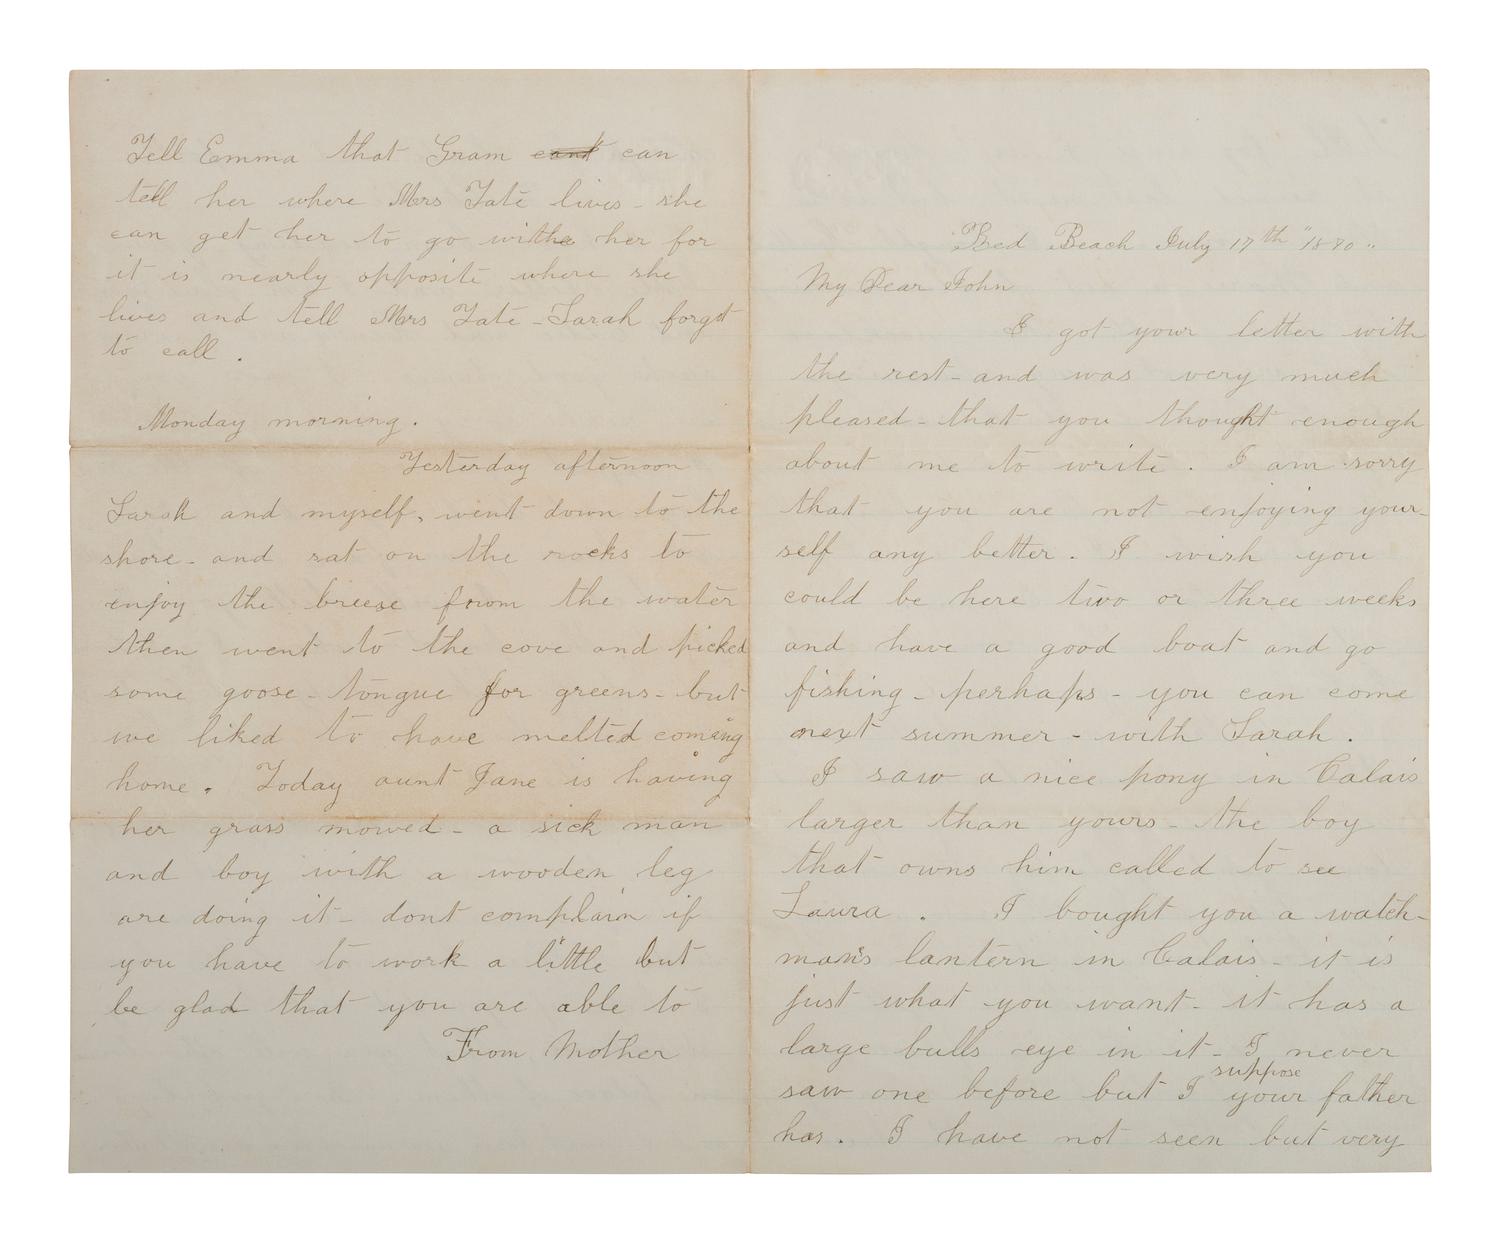 Tell Emma that Gram cant can
tell her where Mrs Tate lives - she
can get her to go withe her for
it is nearly opposite where she
lives and tell Mrs Tate - Sarah forgot
to call.
Monday morning.
Yesterday afternoon
Sarah and myself, went down to the
shore - and sat on the rocks to
enjoy the breese from the water
then went to the cove and picked
some goose - tongue for greens - but
we liked to have melted coming
home. Today aunt Jane is having
her grass mowed - a sick man
and boy with a wooden leg
are doing it - dont complain if
you have to work a little but
be glad that you are able to
From Mother
Red Beach July 17th "1870"
My Dear John
I got your letter with
the rest - and was very much
pleased - that you thought enough
about me to write. I am sorry
that you are not enjoying your-
self any better. I wish you
could be here two or three weeks
and have a good boat and go
fishing - perhaps - you can come
next summer - with Sarah.
I saw a nice pony in Calais
larger than yours - the boy
that owns him called to see
Laura. I bought you a watch-
man's lantern in Calais - it is
just what you want - it has a
large bulls eye in it - I never
saw one before but I suppose your father
has. I have not seen but very